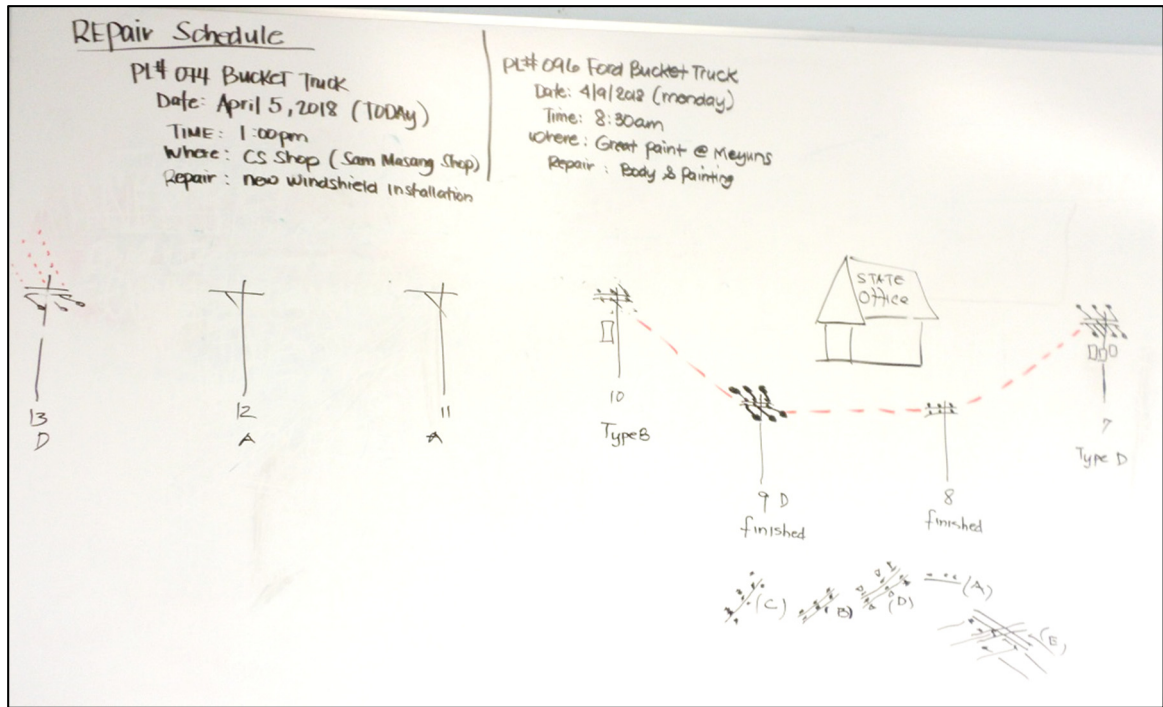 REpair Schedule
PL# 074 Bucket Truck
Date: April 5, 2018 (TODAy)
TIME: 1:00pm
Where: CS Shop (Sam Masang Shop)
Repair: new windshield Installation
PL# 096 Ford Bucket Truck
Date: 4/9/2018 (monday)
Time: 8:30am
Where: Great paint @ Meyuns
Repair: Body & Painting
STATE
Office
13
D
12
A
11
A
10
Type B
9 D
finished
8
finished
7
Type D
(C)
(B)
(D)
(A)
(E)